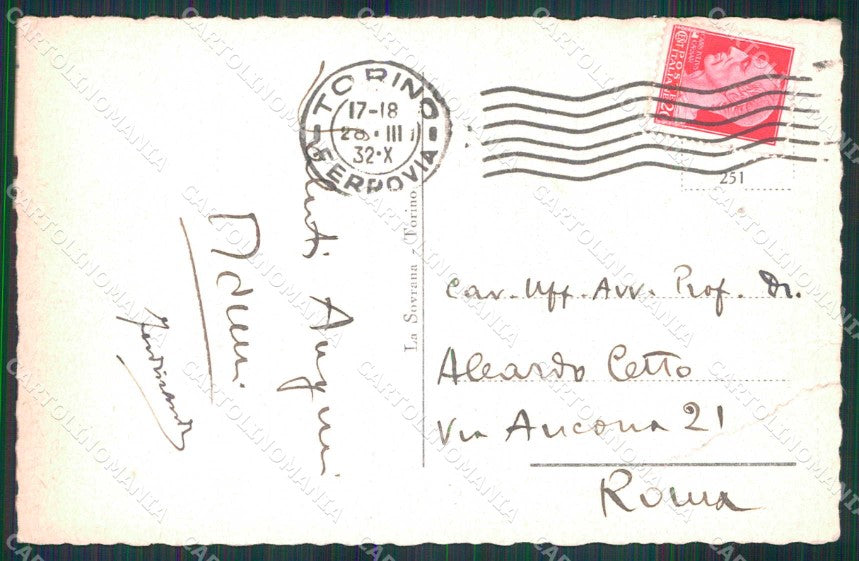 TORINO
17-18
28 · III
32·X
FERROVIA
POSTE ITALIANE
251
La Sovrana - Torino
Cav. Uff. Avv. Prof. Dr.
Aleardo Cetto
Via Ancona 21
Roma
Saluti Auguri
CARTOLINOMANIA